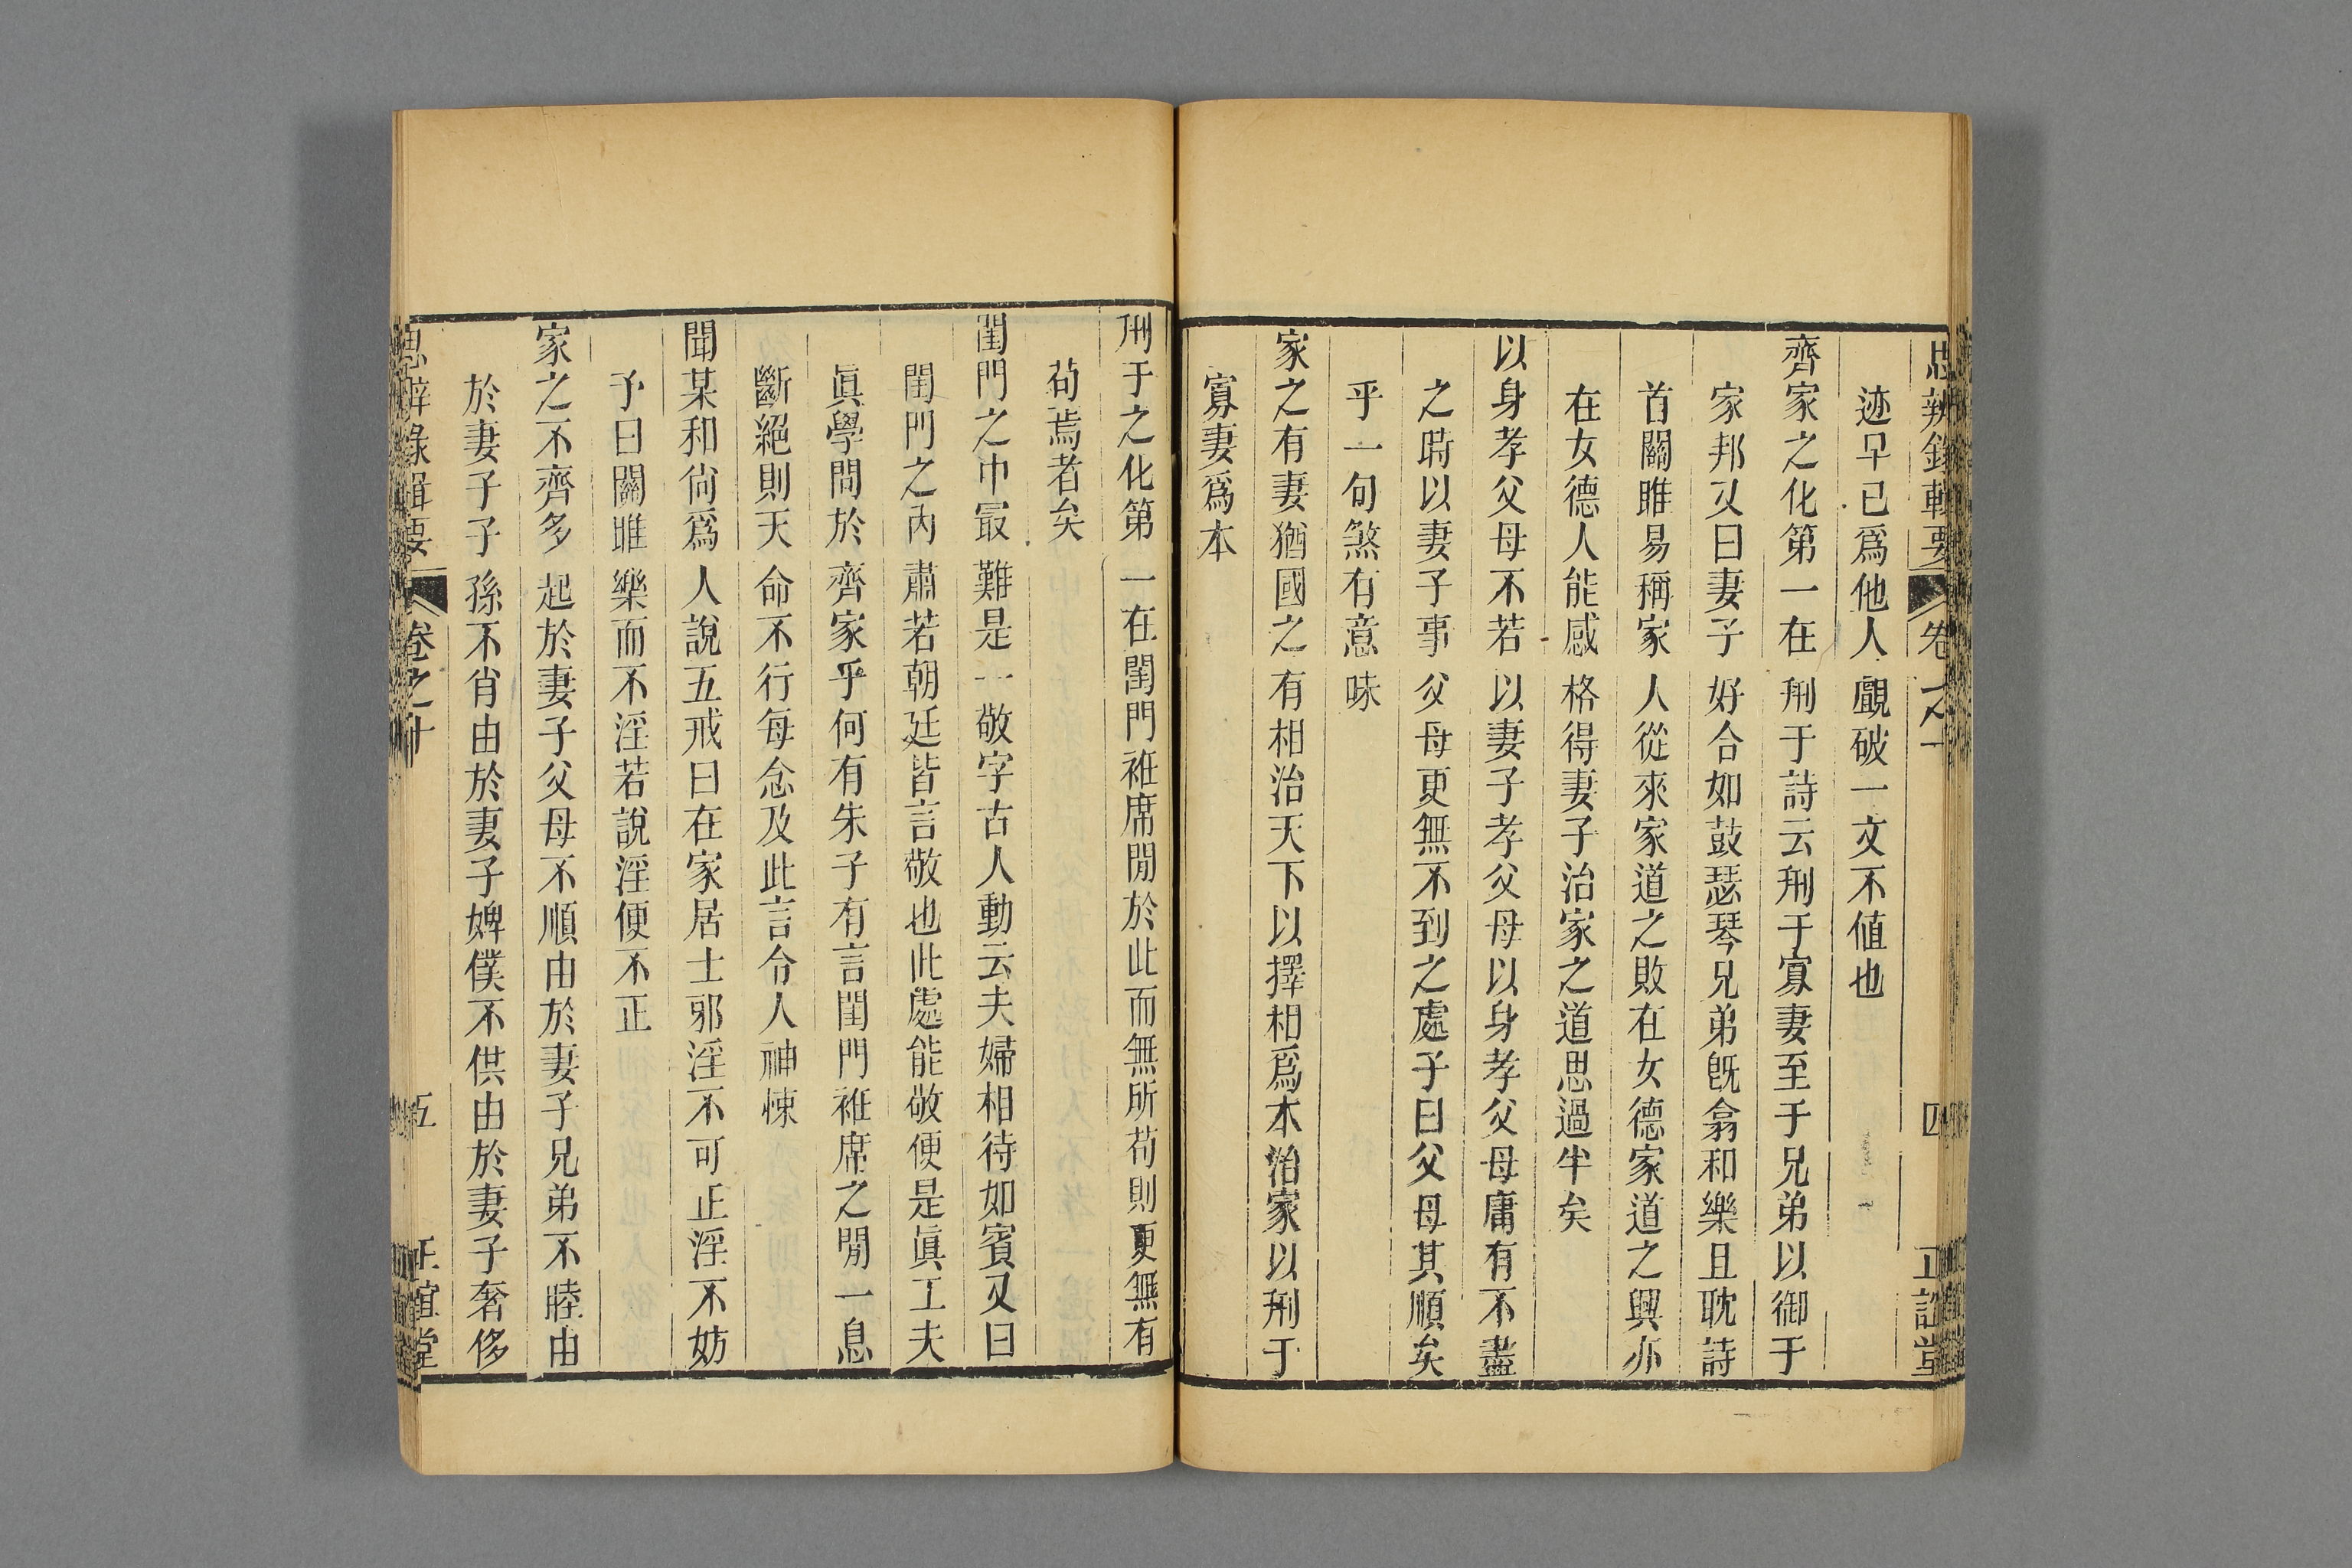 思辨錄輯要 卷之十 四 正誼堂
迹早已爲他人覷破一文不値也
齊家之化第一在刑于詩云刑于寡妻至于兄弟以御于
家邦又曰妻子好合如鼓瑟琴兄弟旣翕和樂且耽詩
首關雎易稱家人從來家道之敗在女德家道之興亦
在女德人能感格得妻子治家之道思過半矣
以身孝父母不若以妻子孝父母以身孝父母庸有不盡
之時以妻子事父母更無不到之處子曰父母其順矣
乎一句煞有意味
家之有妻猶國之有相治天下以擇相爲本治家以刑于
寡妻爲本
刑于之化第一在閨門袵席閒於此而無所苟則更無有
苟焉者矣
閨門之中最難是一敬字古人動云夫婦相待如賓又曰
閨門之內肅若朝廷皆言敬也此處能敬便是眞工夫
眞學問於齊家乎何有朱子有言閨門袵席之閒一息
斷絕則天命不行每念及此言令人神悚
聞某和尙爲人說五戒曰在家居士邪淫不可正淫不妨
予曰關雎樂而不淫若說淫便不正
家之不齊多起於妻子父母不順由於妻子兄弟不睦由
於妻子子孫不肖由於妻子婢僕不供由於妻子奢侈
思辨錄輯要 卷之十 五 正誼堂